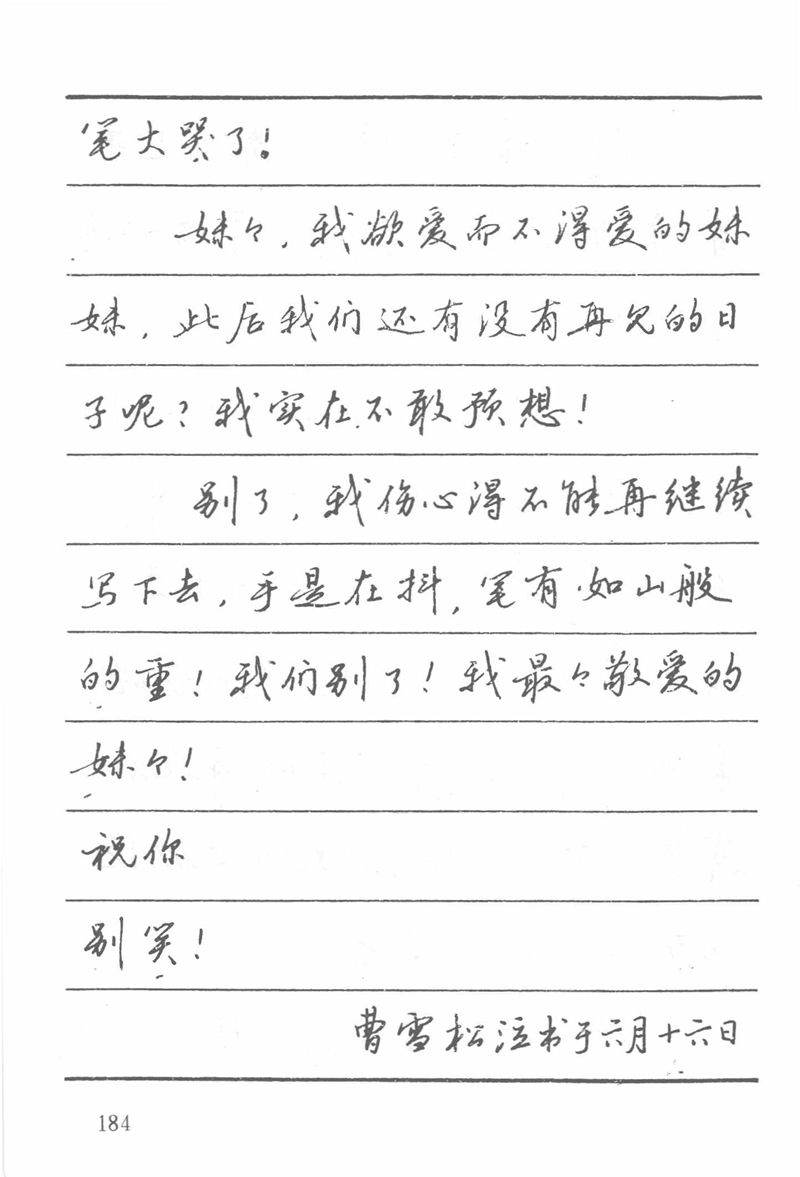 笔大哭了!
妹々,我欲爱而不得爱的妹
妹,此后我们还有没有再见的日
子呢?我实在不敢预想!
别了,我伤心得不能再继续
写下去,手是在抖,笔有如山般
的重!我们别了!我最々敬爱的
妹々!
祝你
别笑!
曹雪松泣书于六月十六日
184